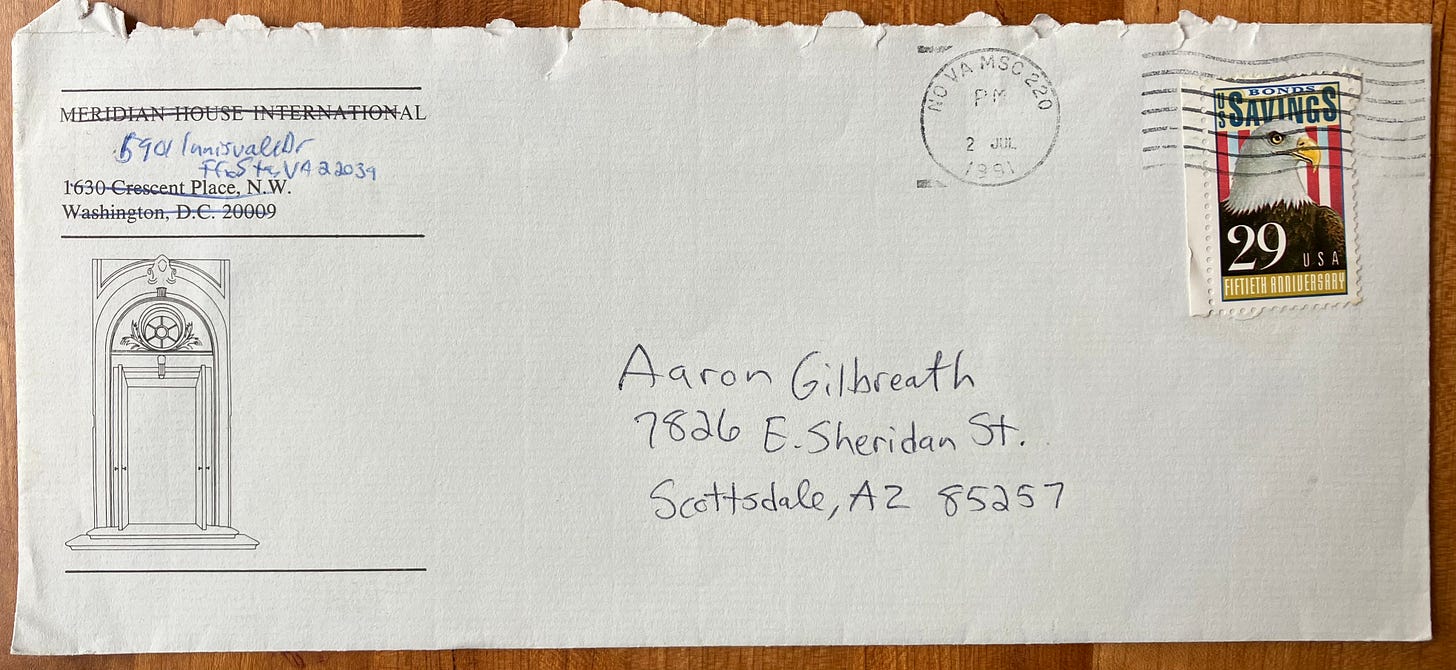 MERIDIAN HOUSE INTERNATIONAL
5901 Innisvale Dr
VA 22039
1630 Crescent Place, N.W.
Washington, D.C. 20009
NOVA MSC 220
PM
2 JUL
1991
US BONDS
SAVINGS
29 USA
FIFTIETH ANNIVERSARY
Aaron Gilbreath
7826 E. Sheridan St.
Scottsdale, AZ 85257